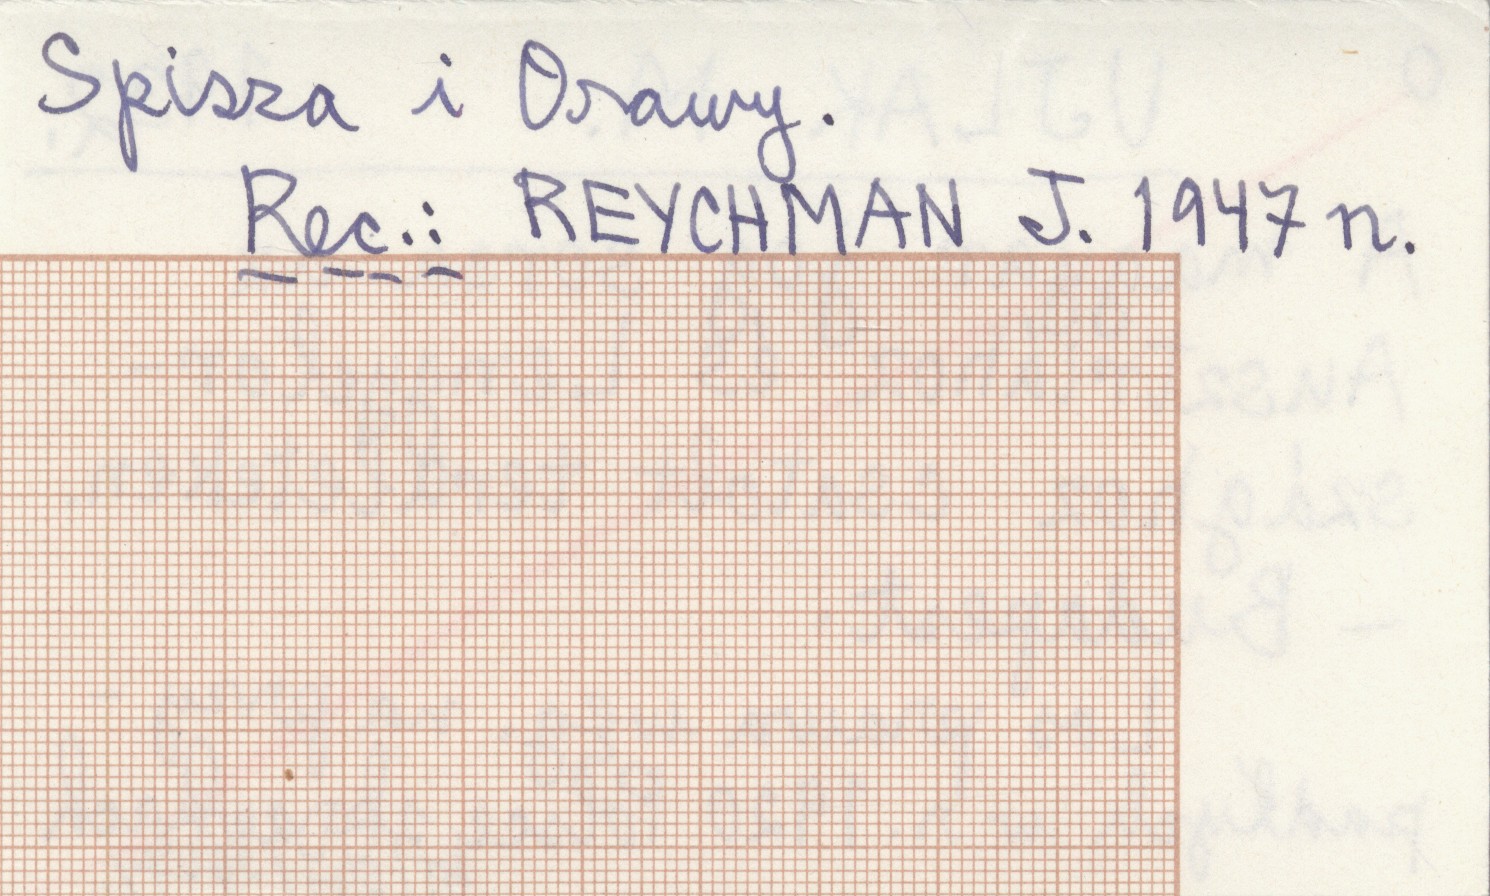 Spisza i Orawy.
Rec.: REYCHMAN J. 1947 n.